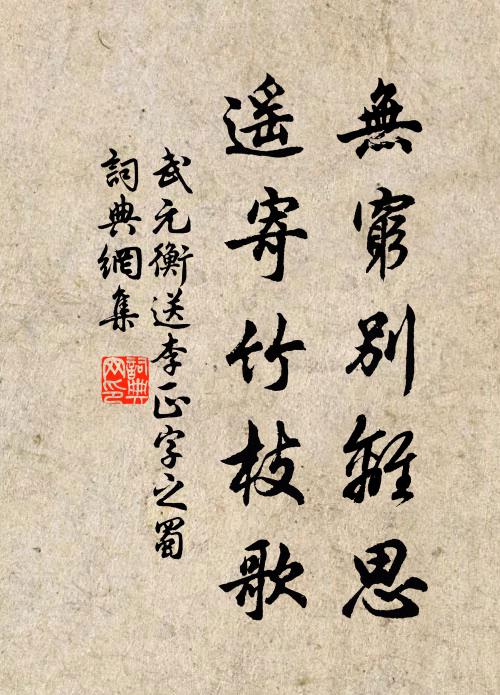 無窮別離思
遥寄竹枝歌
武元衡送李正字之蜀
詞典網集
詞典
网印